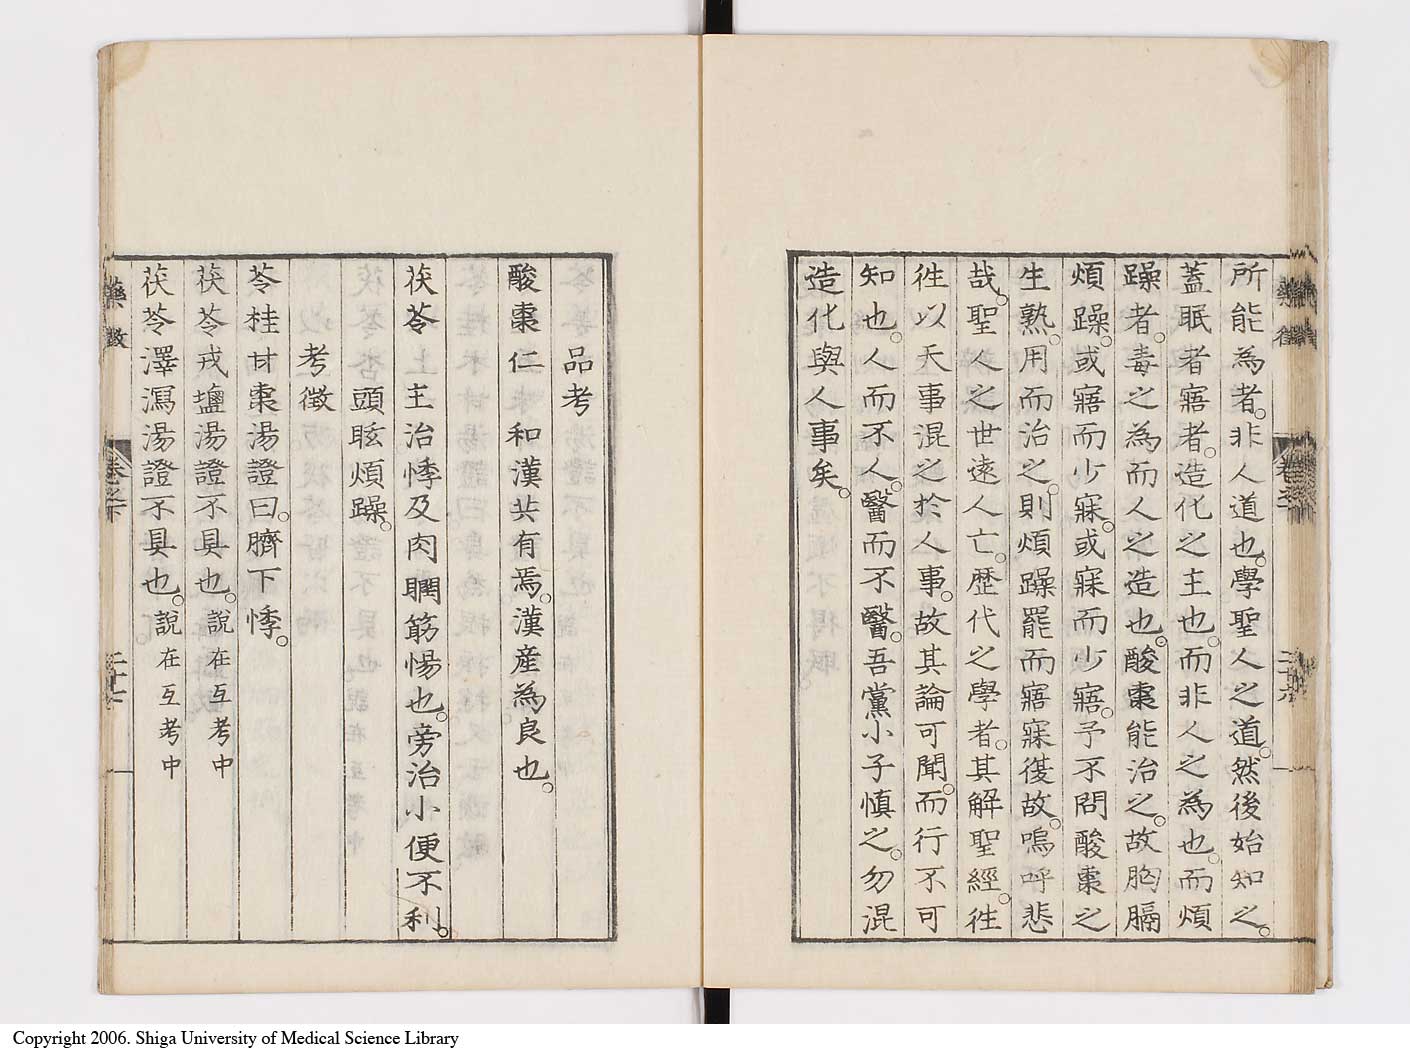 所能為者。非人道也。學聖人之道。然後始知之。
蓋眠者寤者。造化之主也。而非人之為也。而煩
躁者。毒之為而人之造也。酸棗能治之。故胸膈
煩躁。或寤而少寐。或寐而少寤。予不問酸棗之
生熟。用而治之。則煩躁罷而寤寐復故。嗚呼悲
哉。聖人之世遠人亡。歴代之學者。其解聖經。徃
徃以天事混之於人事。故其論可聞。而行不可
知也。人而不人。醫而不醫。吾黨小子慎之。勿混
造化與人事矣。
藥徵
二十六
品考
酸棗仁 和漢共有焉。漢産為良也。
茯苓 主治悸及肉瞤筋惕也。旁治小便不利。
頭眩煩躁。
考徵
苓桂甘棗湯證曰。臍下悸。
茯苓戎鹽湯證不具也。說在互考中
茯苓澤瀉湯證不具也。說在互考中
藥徵
卷之下
二十七
Copyright 2006. Shiga University of Medical Science Library